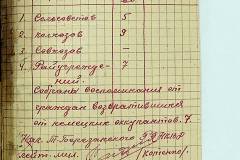 1. Сельсоветов 5
2. колхозов 9
3. Совхозов —
4. Райучрежде-
ний. 7
Собраны воспоминания от
граждан возвратившихся
от немецких оккупантов. 7.
Нач. Т-Березанского
лейт. мил.